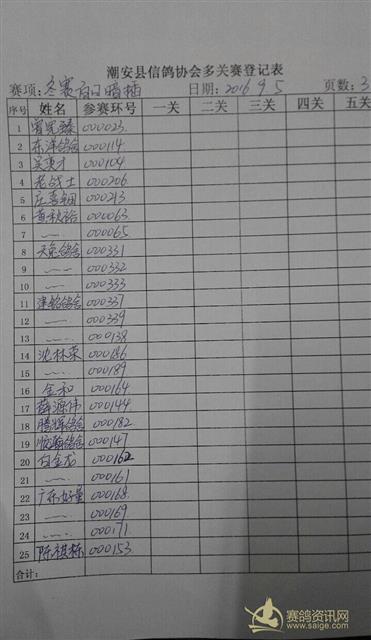 潮安县信鸽协会多关赛登记表
赛项: 冬赛 日期: 2016 9 5 页数: 3
序号 姓名 参赛环号 一关 二关 三关 四关 五关
1 000023
2 东洋鸽舍 000114
3 000104
4 老战士 000206
5 000213
6 000063
7 〃 000065
8 鸽舍 000331
9 〃 000332
10 〃 000333
11 鸽舍 000337
12 〃 000339
13 〃 000138
14 沈林荣 000186
15 〃 000189
16 金和 000164
17 薛源伟 000144
18 腾辉鸽舍 000182
19 鸽舍 000147
20 金龙 000162
21 〃 000161
22 广东 000168
23 〃 000169
24 〃 000171
25 陈祺栋 000153
合计:
赛鸽资讯网
www.saige.com